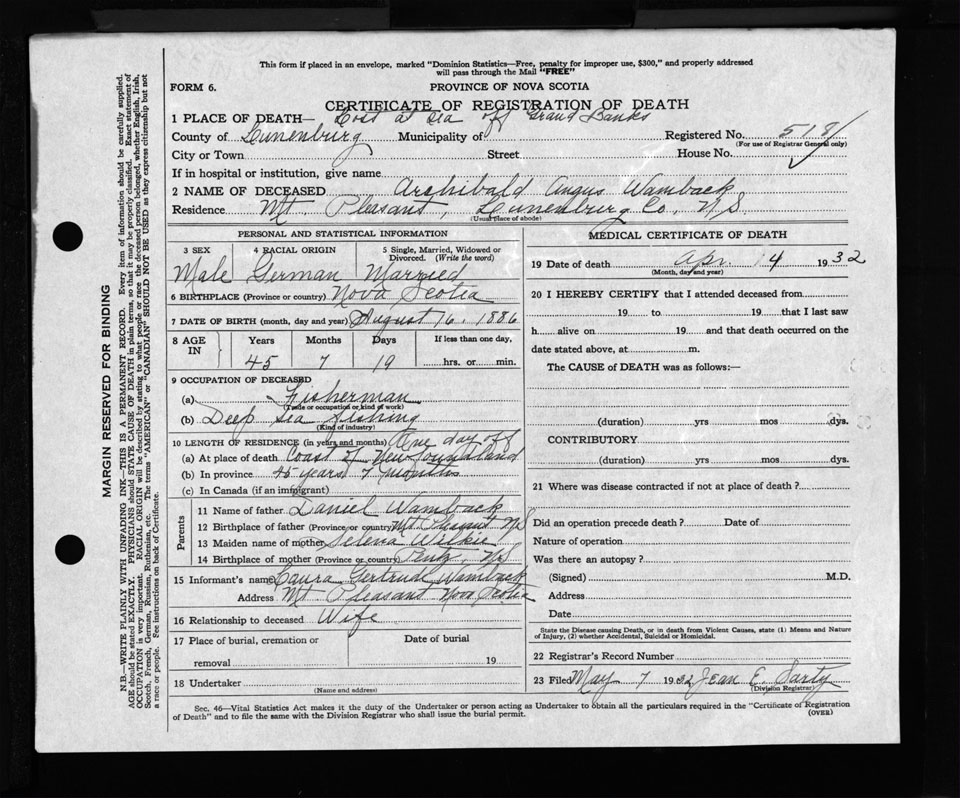 This form if placed in an envelope, marked "Dominion Statistics—Free, penalty for improper use, $300," and properly addressed
will pass through the Mail "FREE"
FORM 6. PROVINCE OF NOVA SCOTIA
CERTIFICATE OF REGISTRATION OF DEATH
1 PLACE OF DEATH— Lost at Sea off Grand Banks
County of Lunenburg Municipality of Registered No. 518
(For use of Registrar General only)
City or Town Street House No.
If in hospital or institution, give name
2 NAME OF DECEASED Archibald Angus Wamback
Residence Mt. Pleasant, Lunenburg Co., N.S
(Usual place of abode)
PERSONAL AND STATISTICAL INFORMATION
3 SEX 4 RACIAL ORIGIN 5 Single, Married, Widowed or
Divorced. (Write the word)
Male German Married
6 BIRTHPLACE (Province or country) Nova Scotia
7 DATE OF BIRTH (month, day and year) August 16, 1886
8 AGE IN Years Months Days If less than one day,
45 7 19 hrs. or min.
9 OCCUPATION OF DECEASED
(a) Fisherman
(Trade or occupation or kind of work)
(b) Deep Sea fishing
(Kind of industry)
10 LENGTH OF RESIDENCE (in years and months) One day off
(a) At place of death Coast of Newfoundland
(b) In province 45 years 7 months
(c) In Canada (if an immigrant)
Parents
11 Name of father Daniel Wamback
12 Birthplace of father (Province or country) Mt. Pleasant N.S
13 Maiden name of mother Selena Wilkie
14 Birthplace of mother (Province or country) N.S
15 Informant's name Laura Gertrude Wamback
Address Mt Pleasant Nova Scotia
16 Relationship to deceased Wife
17 Place of burial, cremation or Date of burial
removal 19
18 Undertaker
(Name and address)
MEDICAL CERTIFICATE OF DEATH
19 Date of death Apr. 14 1932
(Month, day and year)
20 I HEREBY CERTIFY that I attended deceased from
19 to 19 that I last saw
h alive on 19 and that death occurred on the
date stated above, at m.
The CAUSE of DEATH was as follows:—
(duration) yrs mos dys.
CONTRIBUTORY
(duration) yrs mos dys.
21 Where was disease contracted if not at place of death?
Did an operation precede death? Date of
Nature of operation
Was there an autopsy?
(Signed) M.D.
Address
Date
State the Disease causing Death, or in death from Violent Causes, state (1) Means and Nature
of Injury, (2) whether Accidental, Suicidal or Homicidal.
22 Registrar's Record Number
23 Filed May 7 1932 Jean E. Sarty
(Division Registrar)
Sec. 46—Vital Statistics Act makes it the duty of the Undertaker or person acting as Undertaker to obtain all the particulars required in the "Certificate of Registration
of Death" and to file the same with the Division Registrar who shall issue the burial permit. (OVER)
MARGIN RESERVED FOR BINDING
N.B.—WRITE PLAINLY WITH UNFADING INK—THIS IS A PERMANENT RECORD. Every item of information should be carefully supplied.
AGE should be stated EXACTLY. PHYSICIANS should STATE CAUSE OF DEATH in plain terms, so that it may be properly classified. Exact statement of
OCCUPATION is very important. RACIAL ORIGIN will be described by stating to what people or race the deceased person belonged, whether English, Irish,
Scotch, French, German, Russian, Ruthenian, etc. The terms "AMERICAN" or "CANADIAN" SHOULD NOT BE USED as they express citizenship but not
a race or people. See instructions on back of Certificate.